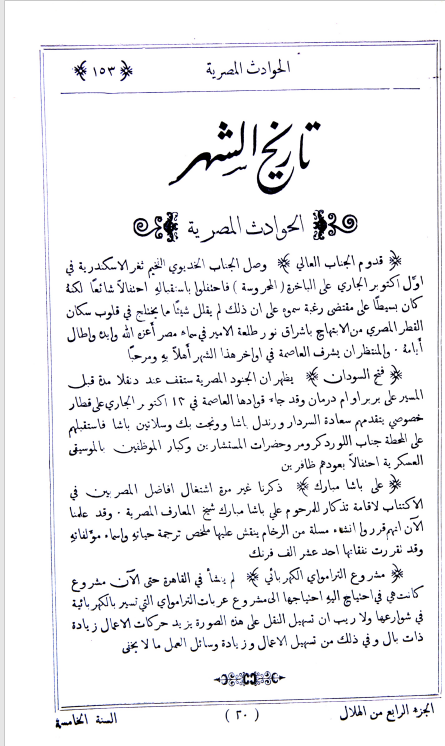 الحوادث المصرية
﴿ ١٥٣ ﴾
تاريخ الشهر
الحوادث المصرية
﴿ قدوم الجناب العالي ﴾ وصل الجناب الخديوي الفخيم ثغر الاسكندرية في
اول اكتوبر الجاري على الباخرة ( المحروسة ) فاحتفلوا باستقبالهِ احتفالاً شائقًا لكنهُ
كان بسيطًا على مقتضى رغبة سموهِ على ان ذلك لم يقلل شيئًا ما يختلج في قلوب سكان
القطر المصري من الابتهاج باشراق نور طلعة الامير في سماء مصر أعزه الله وايده واطال
أيامهُ . والمنتظر ان يشرف العاصمة في اواخر هذا الشهر أهلاً بهِ ومرحبًا
﴿ فتح السودان ﴾ يظهر ان الجنود المصرية ستقف عند دنقلا مدة قبل
المسير على بربر او ام درمان وقد جاء قوادها العاصمة في ١٢ اكتوبر الجاري على قطار
خصوصي يتقدمهم سعادة السردار ورندل باشا وونجت بك وسلاتين باشا فاستقبلهم
على المحطة جناب اللورد كرومر وحضرات المستشارين وكبار الموظفين بالموسيقى
العسكرية احتفالاً بعودهم ظافرين
﴿ على باشا مبارك ﴾ ذكرنا غير مرة اشتغال افاضل المصربين في
الاكتتاب لاقامة تذكار للمرحوم علي باشا مبارك شيخ المعارف المصرية . وقد علمنا
الآن انهم قرروا انشاء مسلة من الرخام ينقش عليها ملخص ترجمة حياتهِ واسماء مؤلفاتهِ
وقد تقررت نفقاتها احد عشر الف فرنك
﴿ مشروع الترامواي الكهربائي ﴾ لم ينشأ في القاهرة حتى الآن مشروع
كانت هي في احتياج اليهِ احتياجها الى مشروع عربات الترامواي التي تسير بالكهربائية
في شوارعها ولا ريب ان تسهيل النقل على هذه الصورة يزيد حركات الاعمال زيادة
ذات بال وفي ذلك من تسهيل الاعمال وزيادة وسائل العمل ما لا يخفى
الجزء الرابع من الهلال
( ٢٠ )
السنة الخامسة